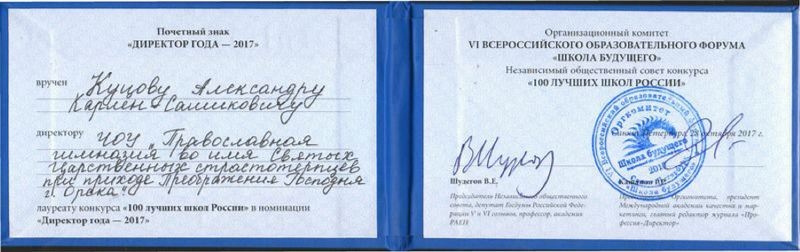 Почетный знак
«ДИРЕКТОР ГОДА — 2017»
вручен
Куцову Александру
директору
ЧОУ „Православная
гимназия во имя Святых
Царственных страстотерпцев
при приходе Преображения Господня
лауреату конкурса «100 лучших школ России» в номинации
«Директор года — 2017»
Организационный комитет
VI ВСЕРОССИЙСКОГО ОБРАЗОВАТЕЛЬНОГО ФОРУМА
«ШКОЛА БУДУЩЕГО»
Независимый общественный совет конкурса
«100 ЛУЧШИХ ШКОЛ РОССИИ»
Оргкомитет
Школа будущего
28 октября 2017 г.
Шудегов В.Е.
Председатель Независимого общественного
совета, депутат Госдумы Российской Феде-
рации V и VI созывов, профессор, академик
РАЕН
Оргкомитета, президент
Международной академии качества и мар-
кетинга, главный редактор журнала «Про-
фессия-Директор»